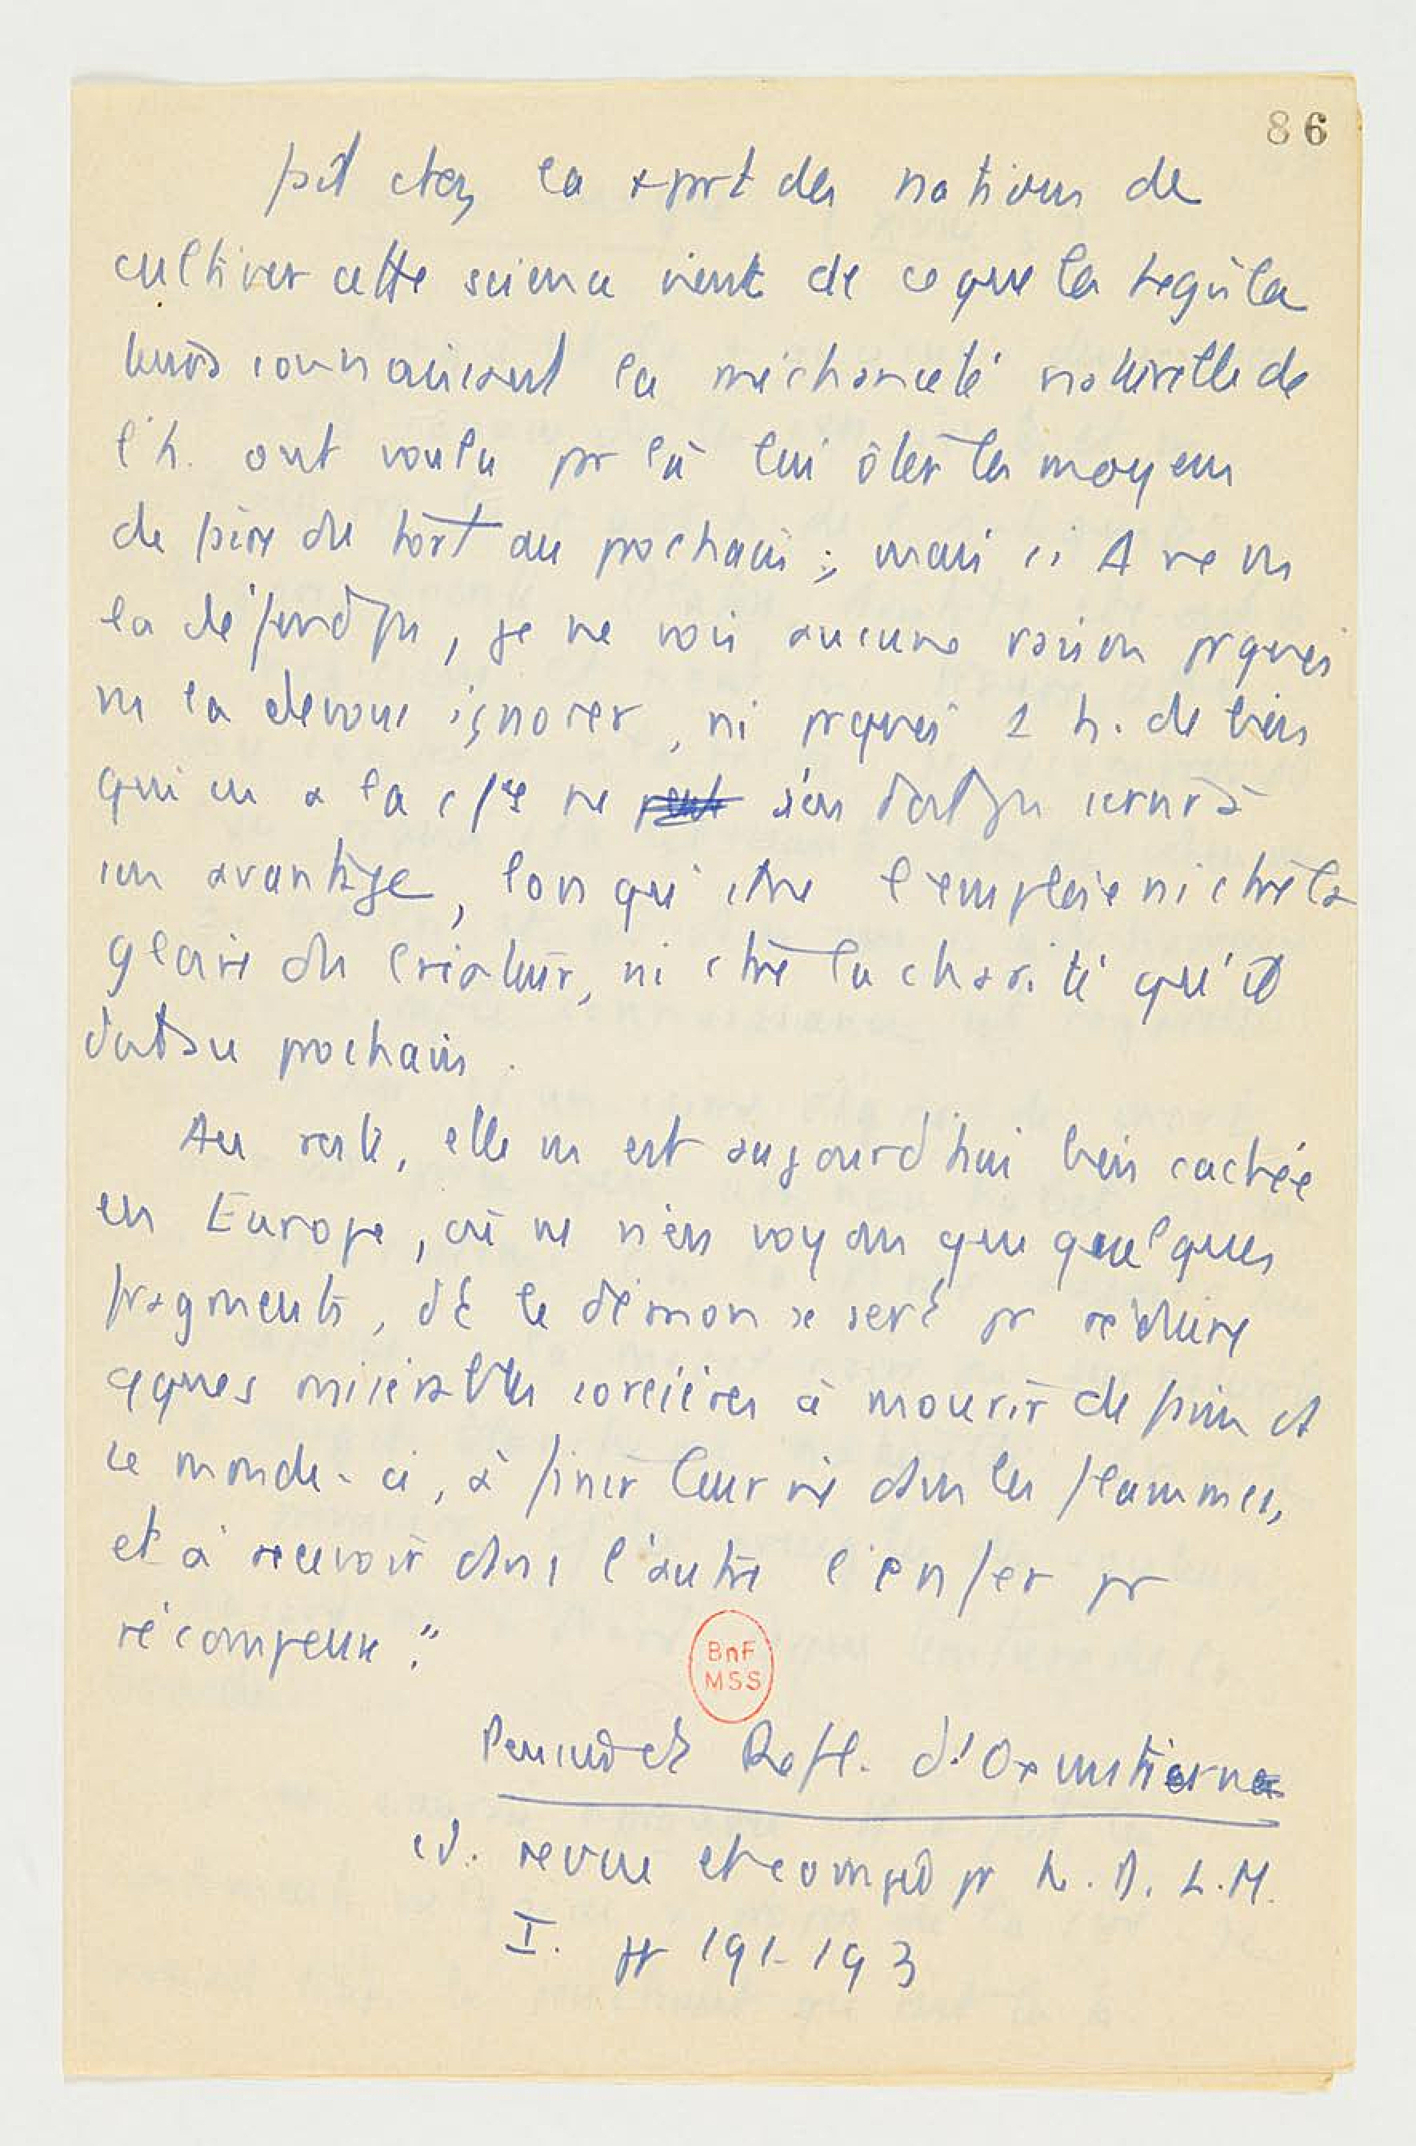 86
fait chez la +part des nations de
cultiver cette science vient de ce que les législa
teurs connaissant la méchanceté naturelle de
l'h. ont voulu par là lui ôter les moyens
de faire du tort au prochain ; mais si A ne ns
la défend pas, je ne vois aucune raison pr quoi
ns la devons ignorer, ni pr quoi 1 h. de bien
qui en a la c/ce ne peut s'en doit pas servir à
son avantage, lorsqu'il ne l'emploie ni ctre la
gloire du Créateur, ni ctre la charité qu'il
doit au prochain.
Au reste, elle ns est aujourd'hui bien cachée
en Europe, où ns n'en voyons que quelques
fragments, dt le démon se sert pr réduire
qques misérables sorcières à mourir de faim ds
ce monde-ci, à finir leur vie dans les flammes,
et à recevoir dans l'autre l'enfer pr
récompense."
BnF
MSS
Pensées et Refl. d'Oxenstierna
éd. revue et corrigée pr L. D. L. M.
I. pp 191-193